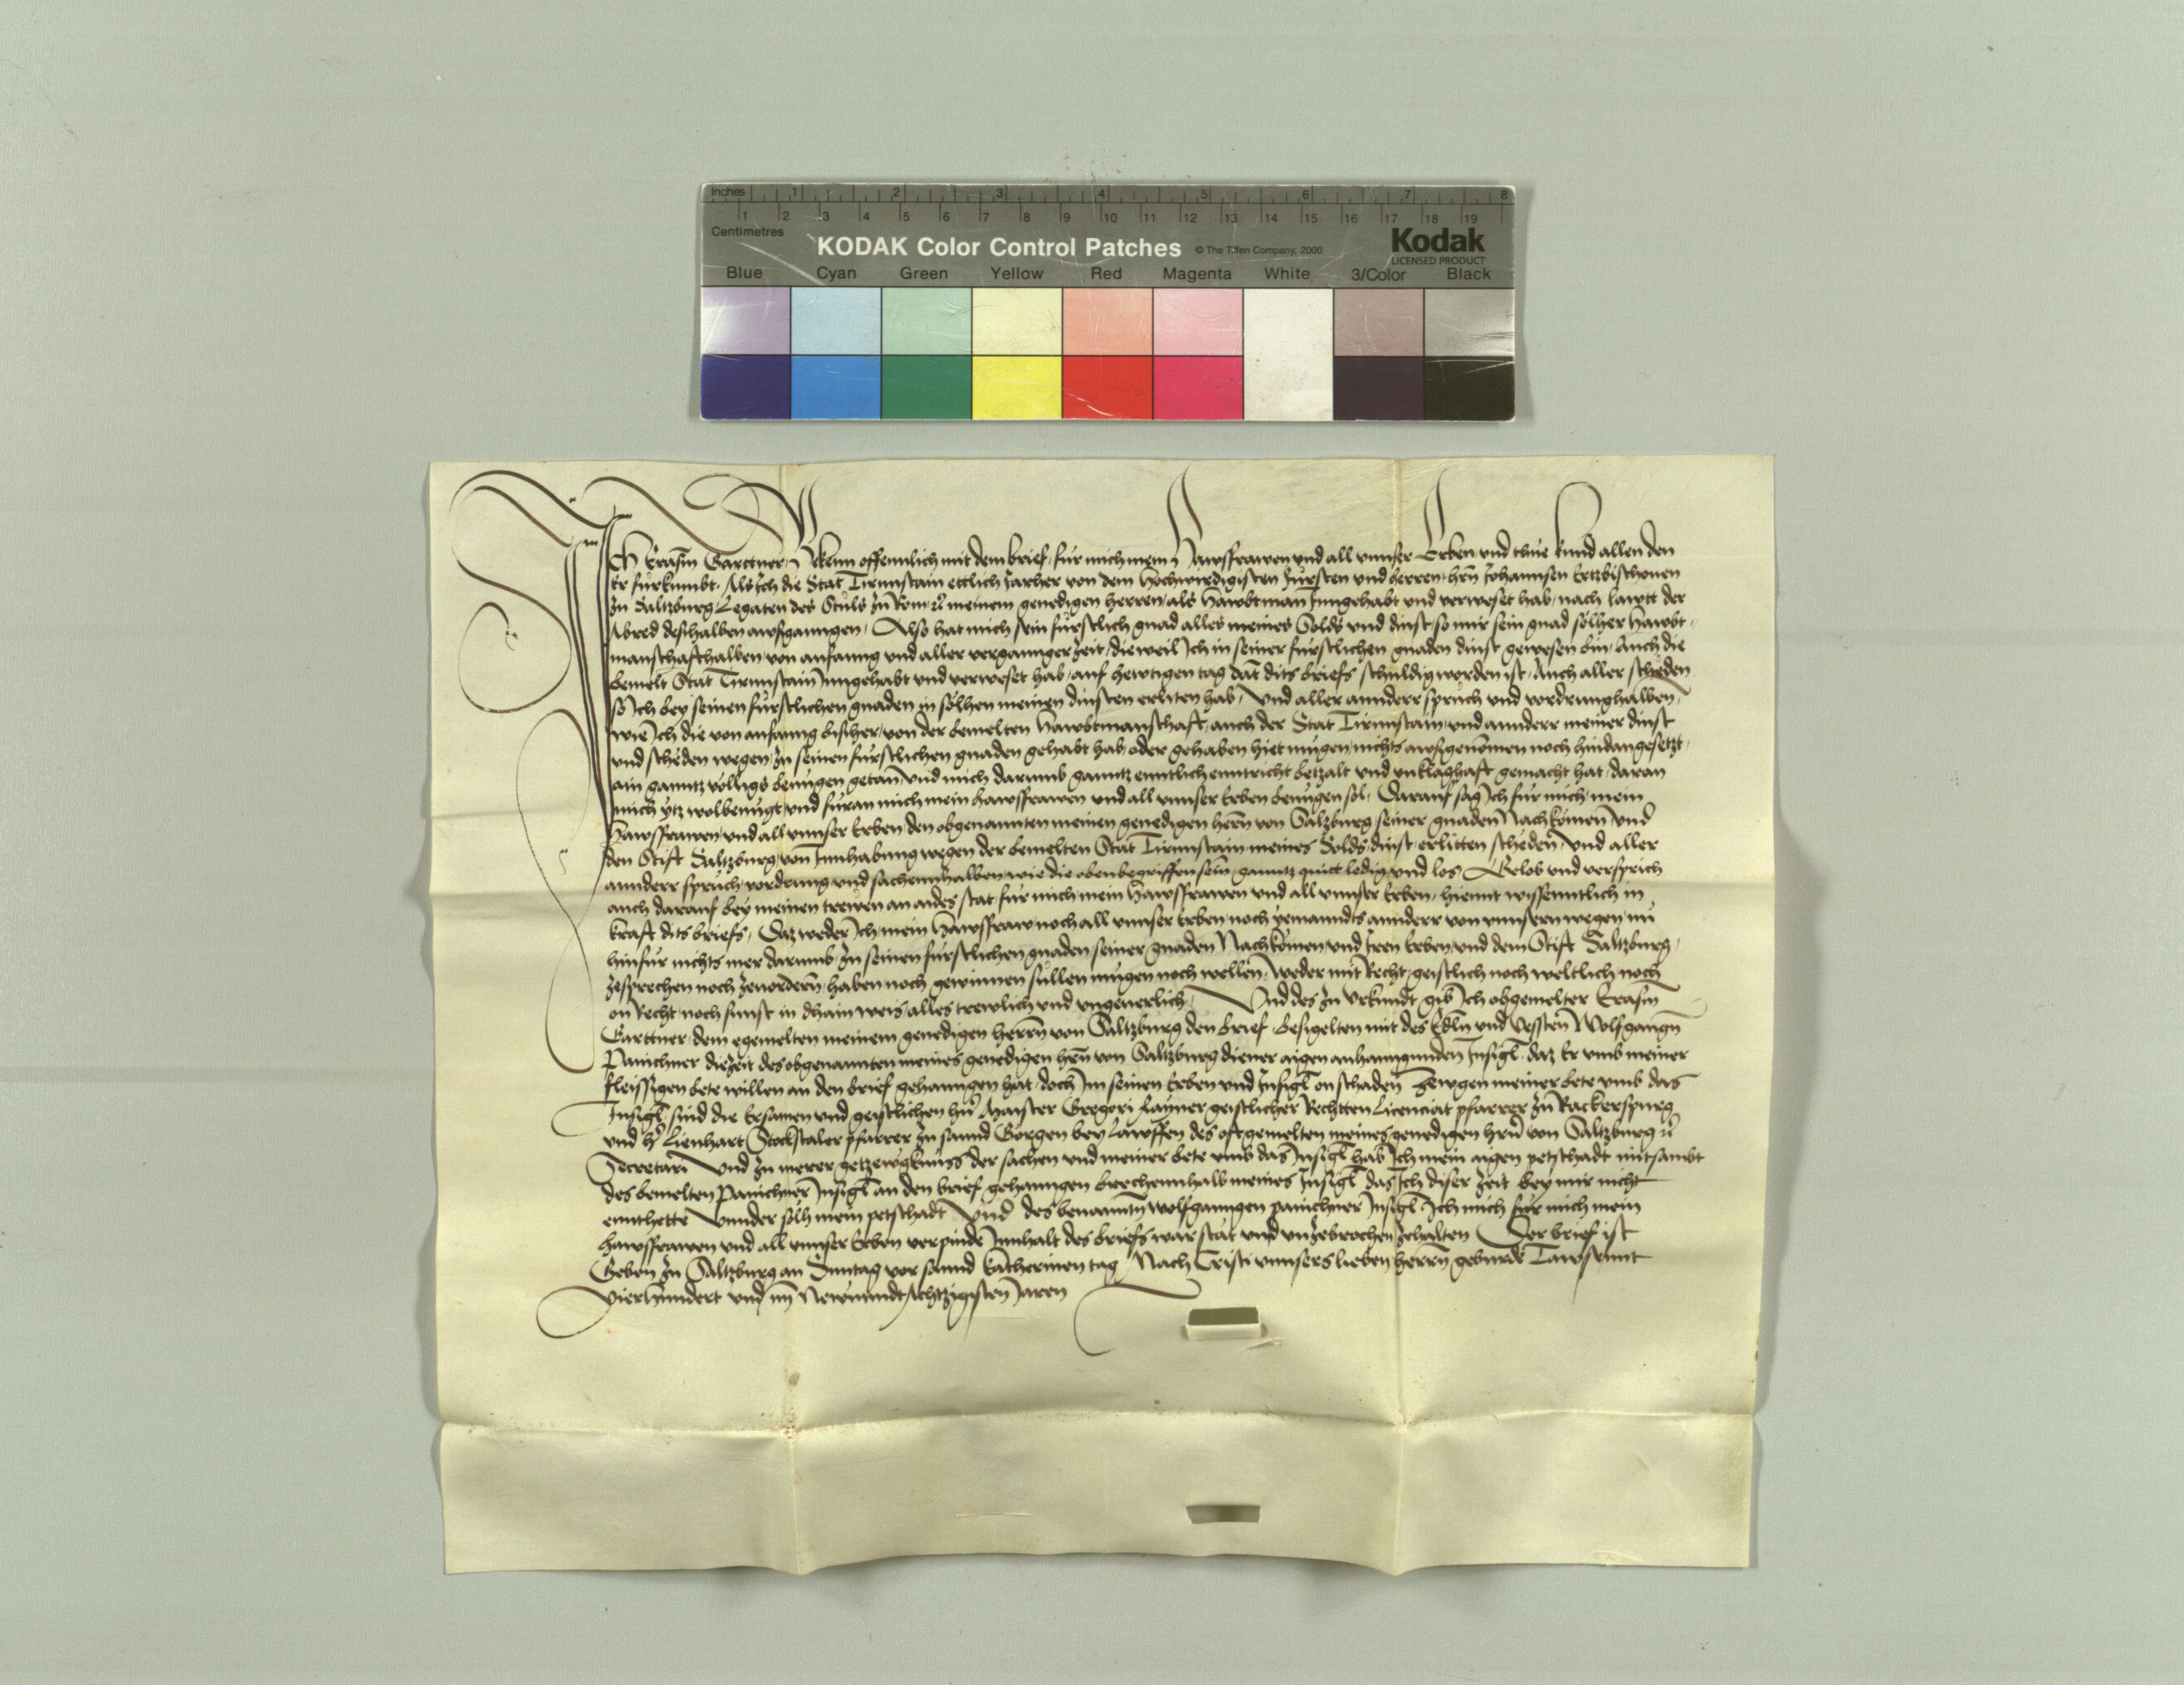 Inches 1 2 3 4 5 6 7 8
1 2 3 4 5 6 7 8 9 10 11 12 13 14 15 16 17 18 19
Centimetres
KODAK Color Control Patches © The Tiffen Company, 2000 Kodak
LICENSED PRODUCT
Blue Cyan Green Yellow Red Magenta White 3/Color Black
Ich Erasm Garttner Bekenn offennlich mit dem brief, fur mich mein Hawsfrawen und all unnser Erben, und thue kund allen den
Er fürkumbt. Als Ich die Stat Tirnnstain ettlich Jarher von dem Hochwirdigisten Fürsten und herren, hern Johannsen Ertzbischouen
zu Saltzburg Legaten des Stuls zu Rom etc meinem genedigen herren, als Hawbtman Inngehabt und verweset hab, nach lawtt der
Abred deshalben awsgangen. Also hat mich sein fürstlich gnad alles meines Solds und dinst, so mir sein gnad solher Hawbt-
manschafthalben, von anfanng und aller verganngen zeit, dieweil Ich in seiner fürstlichen gnaden dinst gewesen bin, Auch die
bemelt Stat Tirnnstain Inngehabt und verweset hab, auf hewtigen tag dat dits briefs schuldig worden ist, Auch aller scheden
so Ich bey seinen fürstlichen gnaden in solhen meinen dinsten erliten hab, Und aller annderr spruch und vordrunghalben,
wie Ich die von anfanng bisher, von der bemelten Hawbtmanschaft, auch der Stat Tirnnstain, und annderr meiner dinst
und scheden wegen, zu seinen fürstlichen gnaden gehabt hab, oder gehaben hiet mugen, nichts awsgenomen noch hindangesetzt,
ain ganntz volligs benugen getan, und mich darumb ganntz enntlich enntricht betzalt und unklaghaft gemacht hat, daran
mich ytz wol benugt, und furan mich mein hawsfrawen und all unnser Erben benugen sol. Darauf sag Ich fur mich, mein
Hawsfrawen, und all unnser Erben, den obgenannten meinen genedigen herrn von Saltzburg, seiner gnaden Nachkomen und
den Stift Saltzburg, von Innhabung wegen der bemelten Stat Tirnnstain, meines Solds, dinst, erlitten scheden, und aller
annderr spruch, vordrung und sachennhalben, wie die oben begriffen sein, ganntz quitt ledig und los. Gelob und versprich
auch darauf bey meinen trewen an aides stat, fur mich mein Hawsfrawen und all unnser Erben, hiemit wissenntlich in
kraft dits briefs, Daz weder Ich, mein Hawsfraw, noch all unnser Erben, noch yemanndts annderr von unnsern wegen, nu
hinfur nichts mer darumb, zu seinen fürstlichen gnaden, seiner gnaden Nachkomen, und Iren Erben, und dem Stift Saltzburg,
zesprechen noch zeuordern, haben, noch gewinnen sullen mugen noch wellen, weder mit Recht, geistlich noch weltlich, noch
on Recht, noch sunst in dhain weis, alles trewlich und ungeuerlich. Und des zu Urkundt gib Ich obgemelter Erasm
Garttner, dem egemelten meinem genedigen herrn von Saltzburg den brief, besigelten mit des Edln und Vessten Wolfganngn
Panichner, die zeit des obgenannten meines genedigen hern von Saltzburg diener, aigen anhanngunden Insigl, daz Er umb meiner
fleissigen bete willen an den brief gehanngen hat, doch Im seinen Erben und Insigl on schaden. Zewgen meiner bete umb das
Insigl, sind die Ersamen und geistlichen hern Maister Gregori Rayner geistlicher Rechtten Licenciat pfarrer zu Rackerspurg
und her Lienhart Stockstaler pfarrer zu sannd Gorgen bey Lawffen des oftgemelten meines genedigen hern von Saltzburg etc
Secretari. Und zu merer getzewgknuss der sachen und meiner bete umb das Insigl hab Ich mein aigen petschadt mitsambt
des bemelten Panichner Insigl an den brief gehanngen brechennhalb meines Insigl das Ich diser zeit bey mir nicht
ennthette. Unnder solh mein petschadt und des benannten wolfganngen panichner Insigl Ich mich fur mich mein
hawsfrawen und all unnser Erben verpinde Innhalt des briefs war stat und unzebrochen zehalten. Der brief ist
Geben zu Saltzburg an Suntag vor sannd Katherinen tag Nach Cristi unnsers lieben herrn geburde Tawsennt
Vierhundert und im Newnundtachtzigisten Jaren